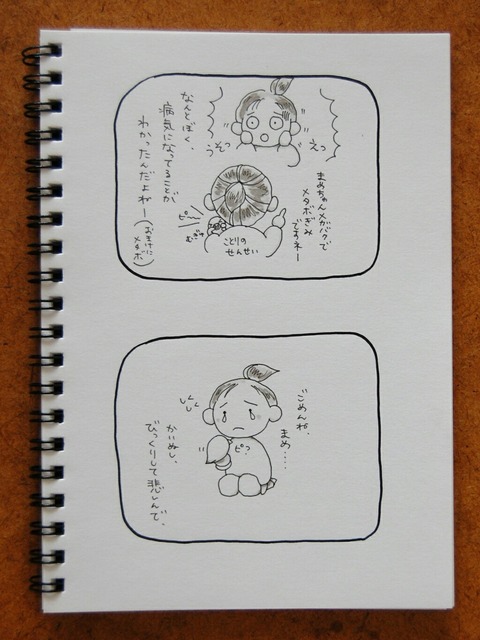 えっ
うそっ
まめちゃんメガバクで
メタボぎみ
ですネー
ことりの
せんせい
ピー
むぎゅ
なんとぼく、
病気になってることが
わかったんだよねー
(おまけに
メタボ)
ごめんね、
まめ....
ピっ
しくしく
かいぬし、
びっくりして悲しんで、